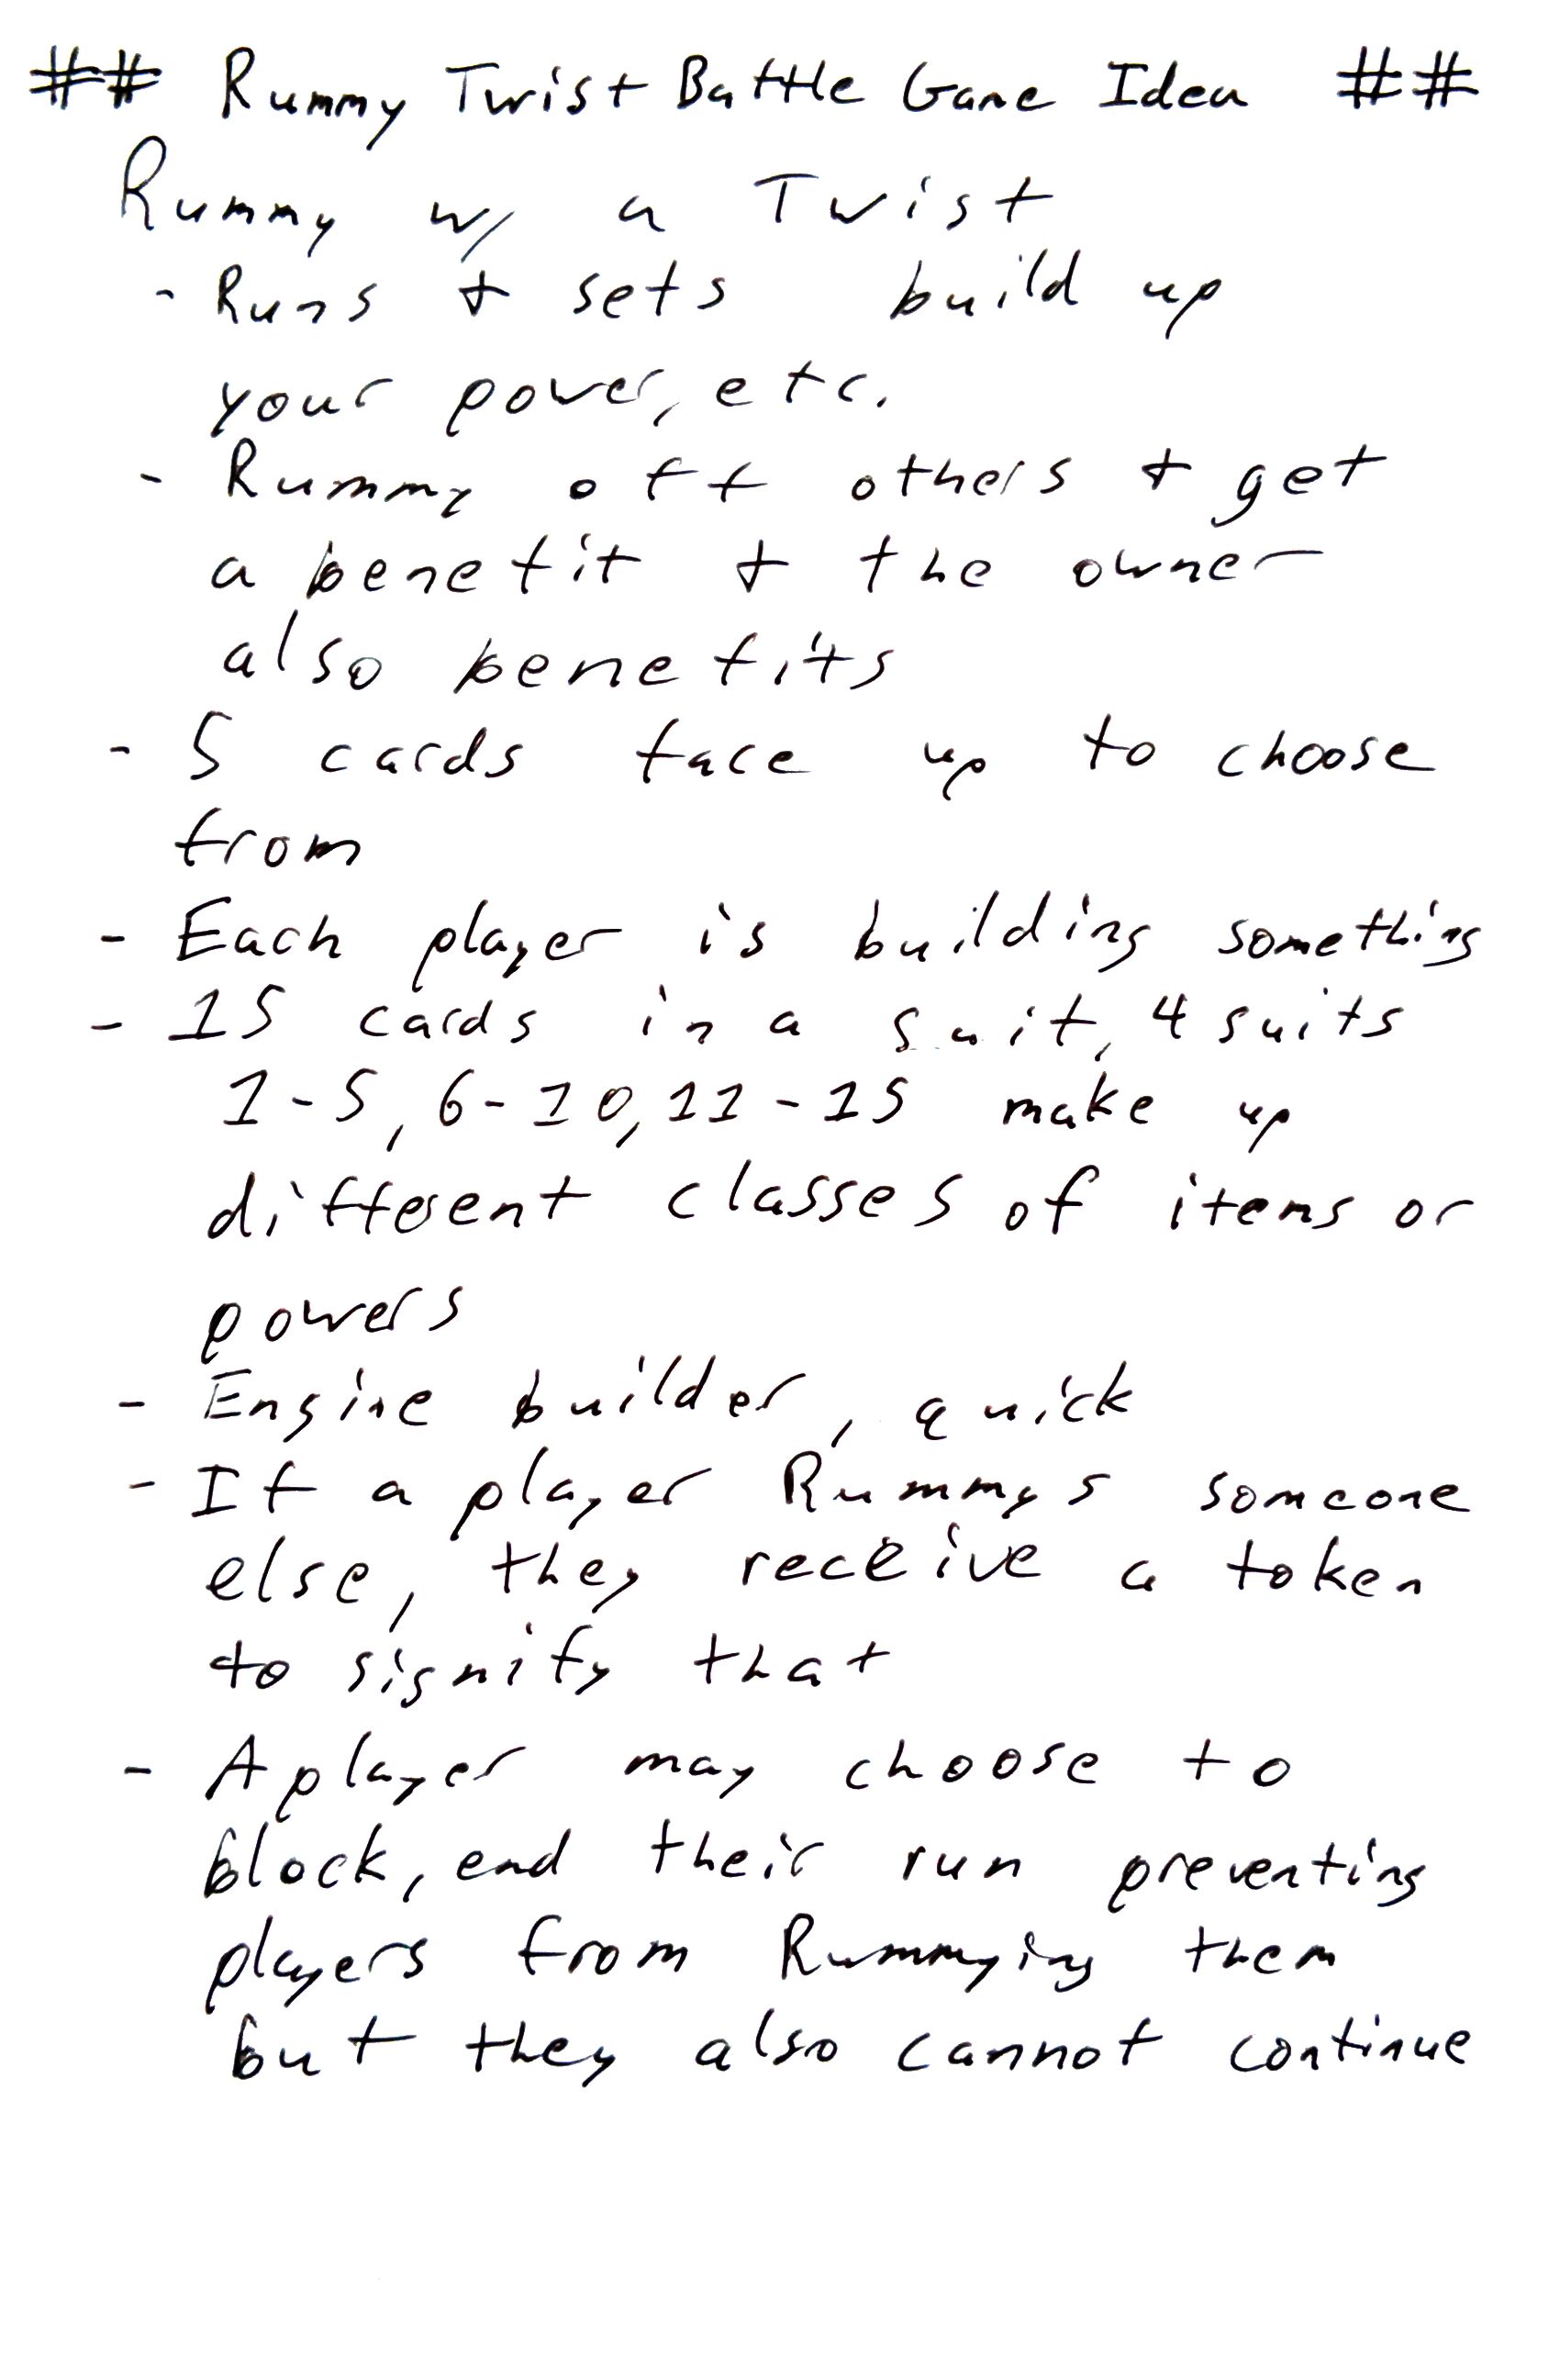 ## Rummy Twist Battle Game Idea ##
Rummy w/ a Twist
- Runs & sets build up
your power, etc.
- Rummy off others & get
a benefit & the owner
also benefits
- 5 cards face up to choose
from
- Each player is building something
- 15 cards in a suit, 4 suits
1-5, 6-10, 11-15 make up
different classes of items or
powers
- Engine builder, quick
- If a player Rummys someone
else, they receive a token
to signify that
- A player may choose to
block, end their run preventing
players from Rummying them
but they also cannot continue